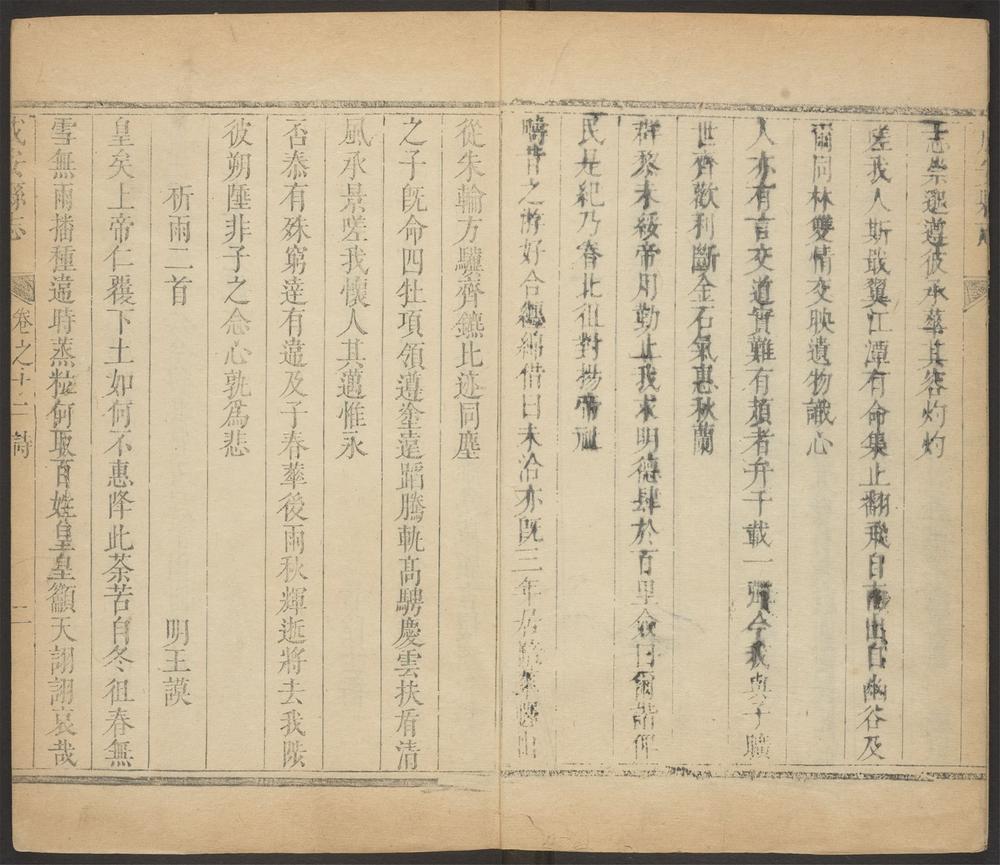 志崇邈遵彼承華其容灼灼
嗟我人斯戢翼江潭有命集止翻飛自南出自幽谷及
爾同林雙情交映遺物識心
人亦有言交道實難有頍者弁千載一彈今我與子曠
世齊歡利斷金石氣惠秋蘭
群黎未綏帝用勤止我求明德肆於百里僉曰爾諧俾
民是紀乃眷北徂對揚帝祉
疇昔之游好合纏綿借曰未洽亦既三年居 出
從朱輪方驥齊鑣比迹同塵
之子既命四牡項領遵塗遠蹈騰軌高騁慶雲扶盾清
風承景嗟我懷人其邁惟永
否泰有殊窮達有違及子春華後爾秋輝逝將去我陟
彼朔陲非子之念心孰為悲
祈雨二首 明王謨
皇矣上帝仁覆下土如何不惠降此荼苦自冬徂春無
雪無雨播種違時蒸粒何取百姓皇皇籲天詡詡哀哉
成安縣志 卷之十二 詩 二